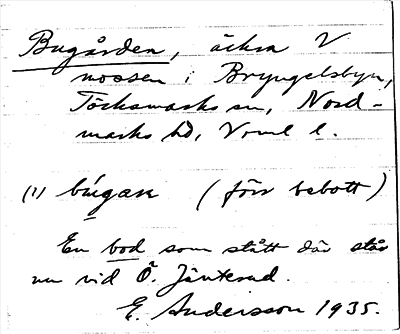 Bugården, åkra V
mossen i Bryngelsbyn,
Töcksmarks sn, Nord-
marks hd, Vrml l.
(1) búgan (förr bebott)
En bod som stått där står
nu vid Ö. Jänterud.
E. Andersson 1935.